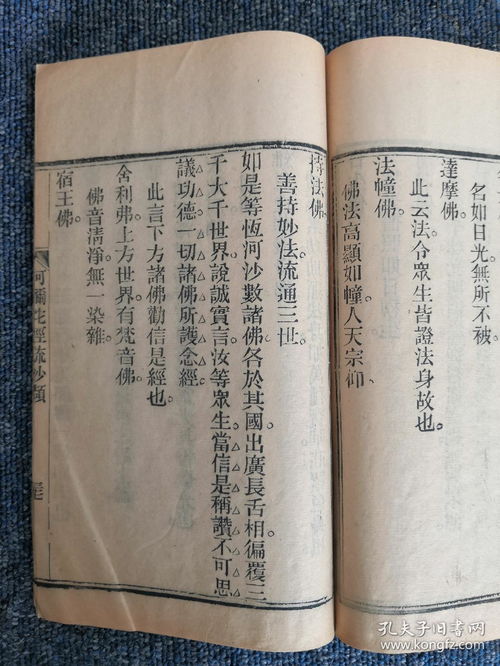 名如日光無所不被。
達摩佛。
此云法令眾生皆證法身故也。
法幢佛。
佛法高顯如幢人天宗仰、
持法佛。
善持妙法流通三世。
如是等恆河沙數諸佛各於其國出廣長舌相徧覆三
千大千世界說誠實言汝等眾生當信是稱讚不可思
議功德一切諸佛所護念經
此言下方諸佛勸信是經也。
舍利弗上方世界有梵音佛。
佛音清淨無一染雜。
宿王佛。
阿彌陀經疏鈔擷
孔夫子旧书网
www.kongfz.com